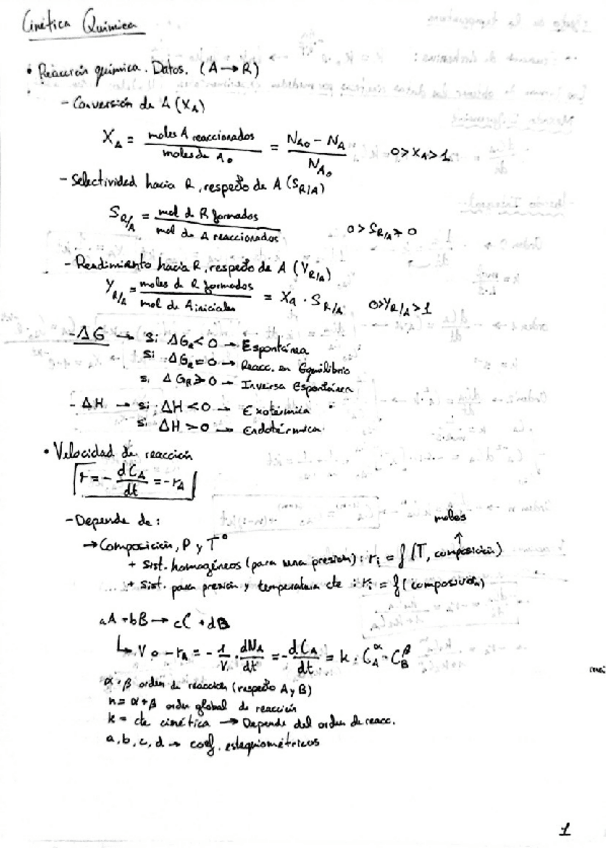 Cinética Química
• Reacción química. Datos. (A → R)
- Conversión de A (XA)
XA = moles A reaccionados / moles de A0 = (NA0 - NA) / NA0    0 > XA > 1
- Selectividad hacia R, respecto de A (SR/A)
SR/A = mol de R formados / mol de A reaccionados    0 > SR/A > 0
- Rendimiento hacia R, respecto de A (YR/A)
YR/A = moles de R formados / mol de A iniciales = XA · SR/A    0 > YR/A > 1
- ΔG → Si ΔGR < 0 → Espontánea
Si ΔGR = 0 → Reacc. en Equilibrio
Si ΔGR > 0 → Inversa Espontánea
- ΔH → Si ΔH < 0 → Exotérmica
Si ΔH > 0 → Endotérmica
• Velocidad de reacción
r = - dCA/dt = - rA
- Depende de:
moles
→ Composición, P y Tº
+ Sist. homogéneos (para una presión): ri = f (T, composición)
+ Sist. para presión y temperatura cte : ri = f (composición)
aA + bB → cC + dB
↳ V o - rA = - 1/V · dNA/dt = - dCA/dt = k · CA^α · CB^β
α · β orden de reacción (respecto A y B)
n = α + β orden global de reacción
k = cte cinética → Depende del orden de reacc.
a, b, c, d → coef. estequiométricos
1